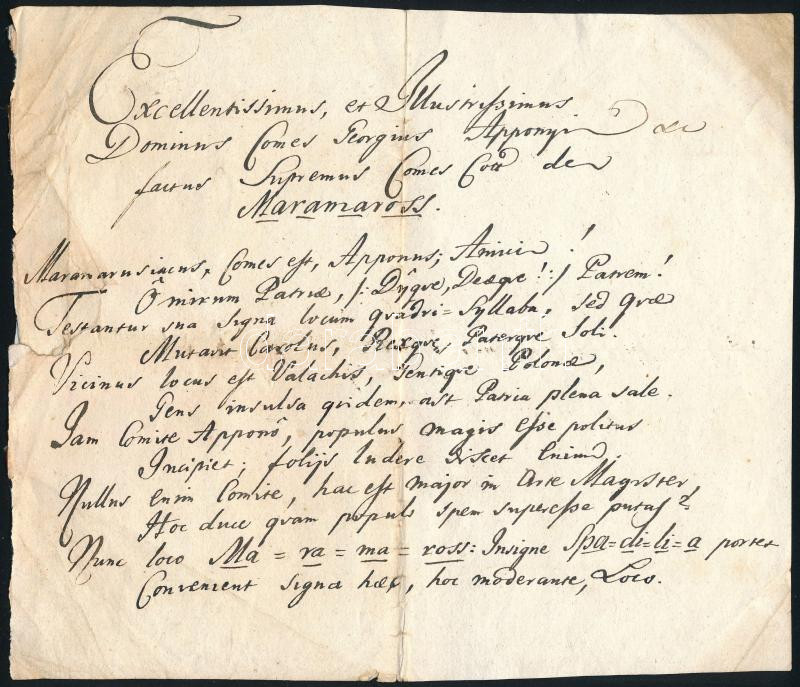 Excellentissimus, et Illustrissimus
Dominus Comes Georgius Apponyi &c
factus Supremus Comes Cottus de
Maramaross.
Maramarusiacus, Comes est, Apponus; Amici!
O nimium Patriæ, /: Dŷque, Deæque! :/ Patrem!
Testantur sua signa locum quadri=Syllaba, sed quæ
Mutavit Carolus, Rexque, Paterque Soli.
Vicinus locus est Valachis, Gentique Polonæ,
Gens insulsa quidem, ast Patria plena sale.
Iam Comite Apponô, populus magis esse politus
Incipiet; folijs ludere discet enim.
Nullus enim Comite, hac est major in Arte Magister,
Hoc duce quam populi spem superesse putas?
Nunc loco Ma=ra=ma=ross: Insigne Spa=di=li=a portet
Convenient signa hæc, hoc moderante, Loco.